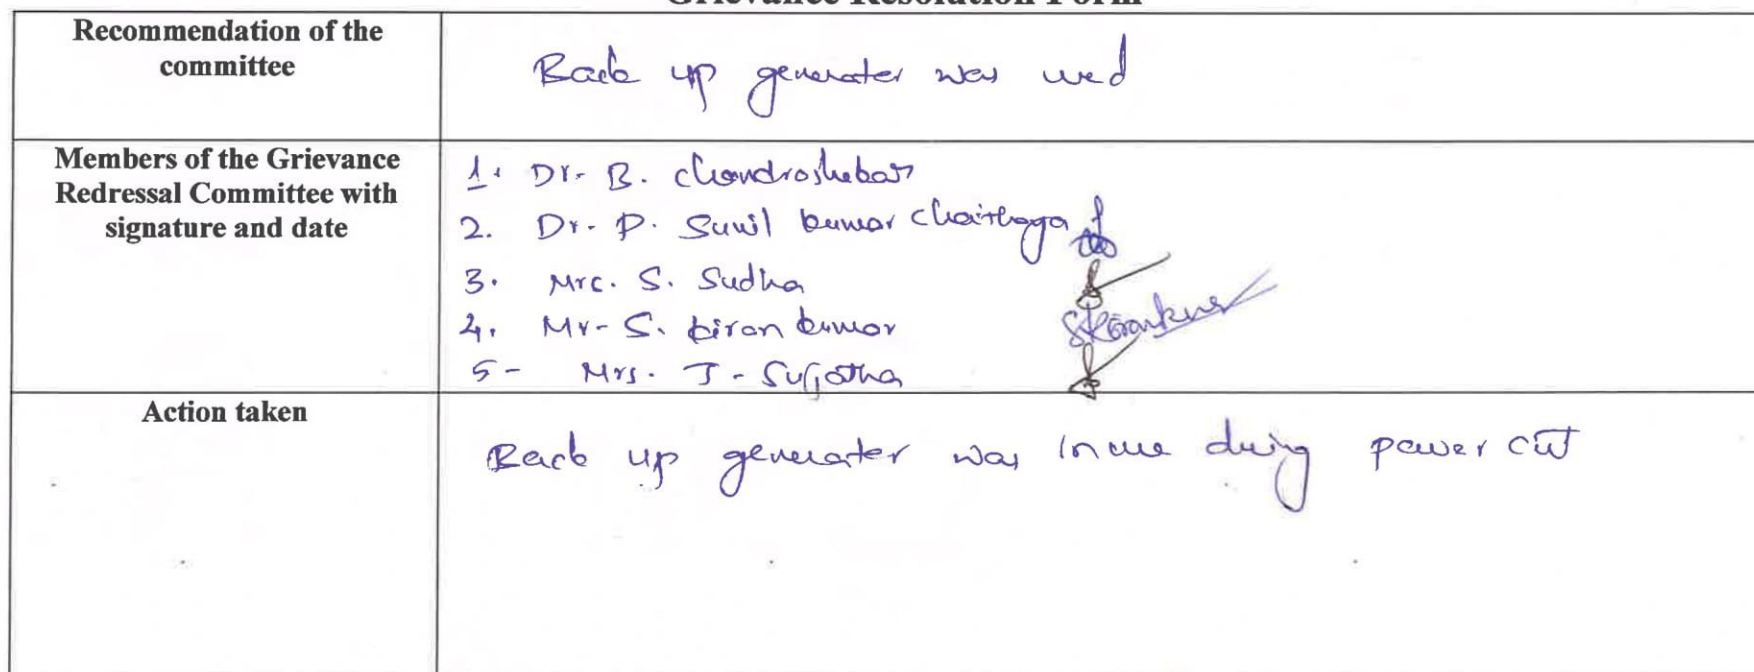 Grievance Resolution Form
Recommendation of the
committee
Back up generater was used
Members of the Grievance
Redressal Committee with
signature and date
1. Dr. B. Chandroshekar
2. Dr. P. Sunil kumar Chaithaya
3. Mrs. S. Sudha
4. Mr. S. kiran kumar
SKirankumar
5 - Mrs. J - Sujatha
Action taken
Back up generater was inuse during power cut